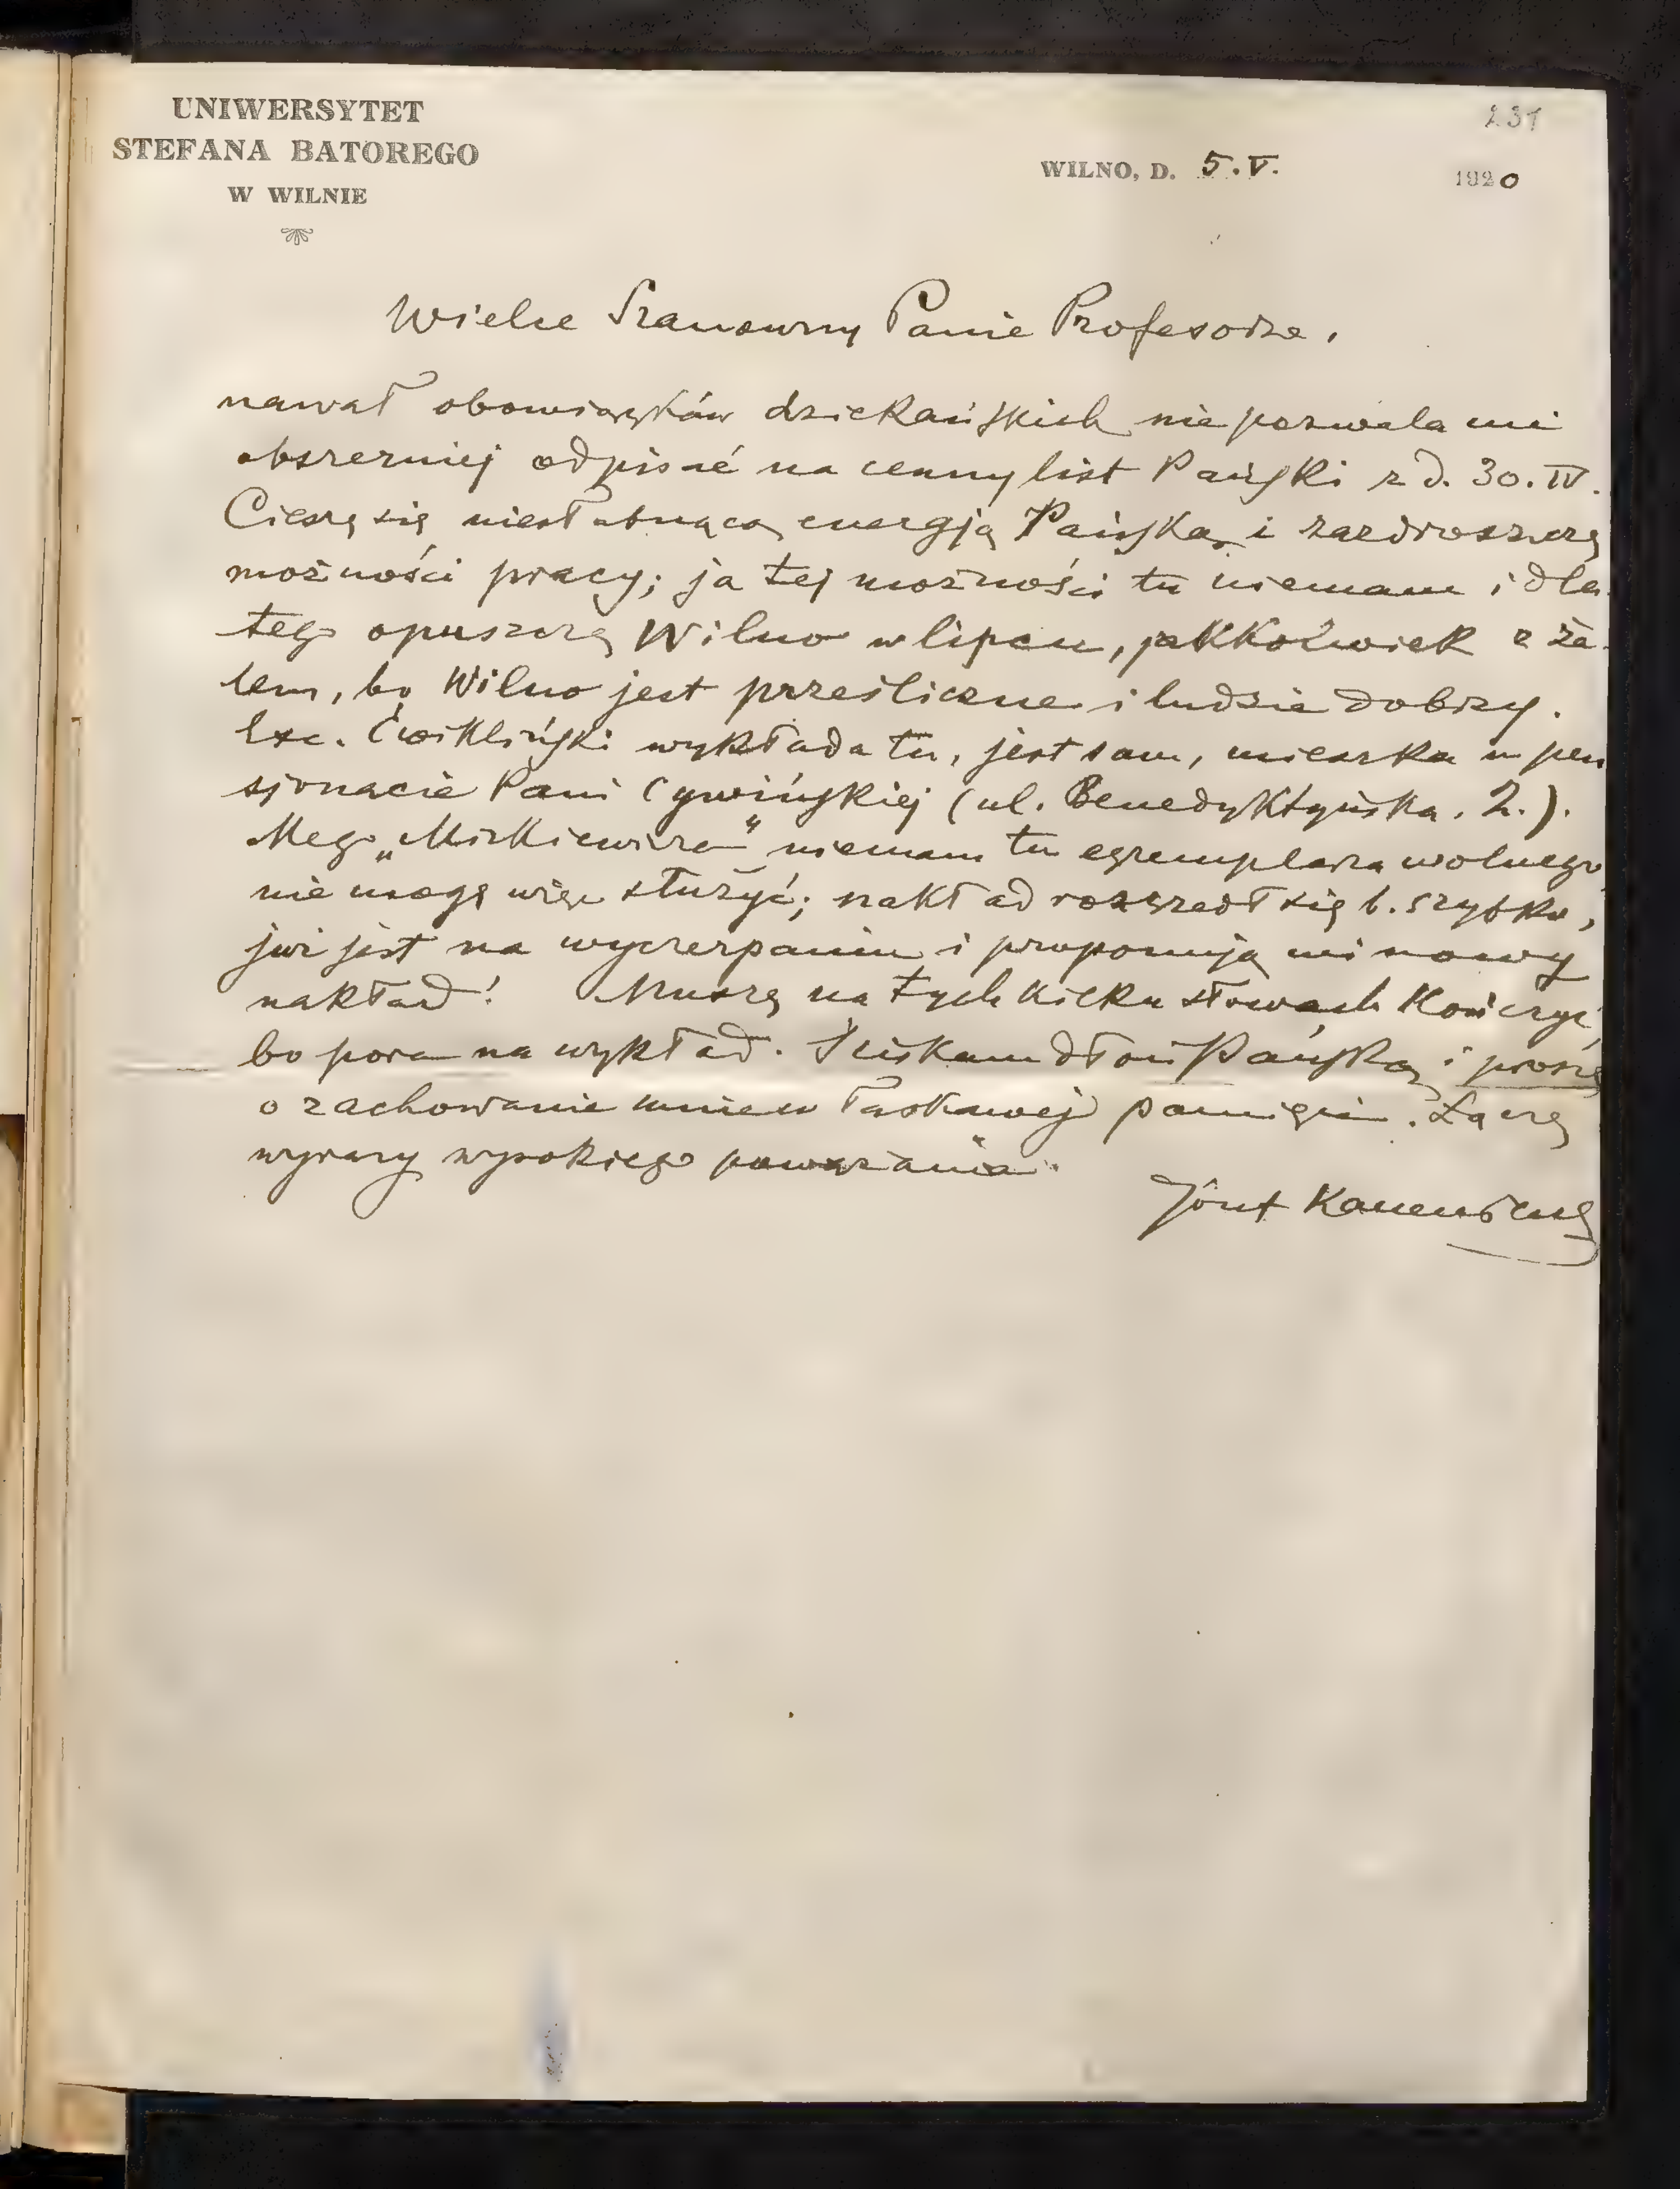 231
UNIWERSYTET
STEFANA BATOREGO
W WILNIE
WILNO, D. 5. V. 1920
Wielce Szanowny Panie Profesorze,
nawał obowiązków dziekańskich nie pozwala mi
obszerniej odpisać na cenny list Pański z d. 30. IV.
Cieszę się niesłabnącą energją Pańską i zazdroszczę
możności pracy; ja tej możności tu niemam i dla-
tego opuszczę Wilno w lipcu, jakkolwiek z ża-
lem, bo Wilno jest prześliczne i ludzie dobrzy.
Exc. Ćwikliński wykłada tu, jest sam, mieszka w pen
sjonacie Pani Cywińskiej (ul. Benedyktyńska. 2.).
Mego „Mickiewicza" niemam tu egzemplarza wolnego,
nie mogę więc służyć; nakład rozszedł się b. szybko,
już jest na wyczerpaniu i proponują mi nowy
nakład! Muszę na tych kilku słowach kończyć,
bo pora na wykład. Ściskam dłoń Pańską i proszę
o zachowanie mnie w łaskawej pamięci. Łączę
wyrazy wysokiego poważania.
Józef Kallenbach